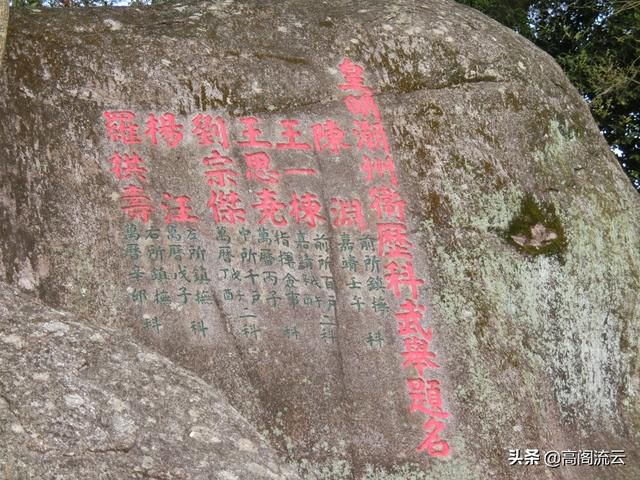 皇明潮州衛歷科武舉題名
陳淵
前所鎮撫科
嘉靖壬午
王一棟
前所百戶二科
嘉靖戊午
王思堯
指揮僉事科
萬曆丙子
劉宗傑
中所千戶二科
萬曆丁酉
楊汪
左所鎮撫科
萬曆戊子
羅棋壽
右所鎮撫科
萬曆辛卯
头条 @高阁流云